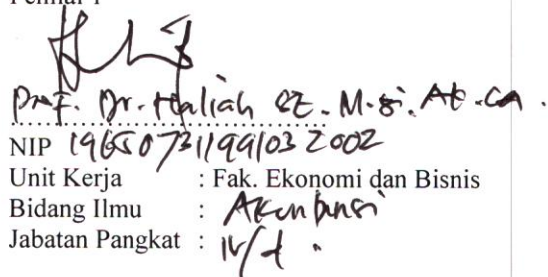 Prof. Dr. Haliah SE. M.Si. Ak. CA.
NIP 196507311991032002
Unit Kerja : Fak. Ekonomi dan Bisnis
Bidang Ilmu : Akuntansi
Jabatan Pangkat : IV/d